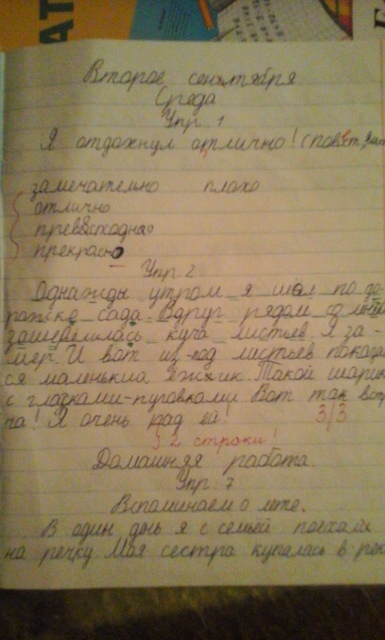 АТ
Второе сентября
Среда
Упр. 1
Я отдохнул отлично! (повеств.,
замечательно плохо
отлично
превосходная
прекрасно
Упр 2
Однажды утром я шёл по до-
рожке сада. Вдруг рядом со мной
зашевелилась куча листьев. Я за-
мер. И вот из-под листьев показал
ся маленькиа ёжик. Такой шарик
с глазками-пуговками. Вот так встре
ча! Я очень рад ей! 3/3
2 строки!
Домашняя работа.
Упр. 7
Вспоминаем о лете.
В один день я с семьёй поехали
на речку. Моя сестра купалась в рек